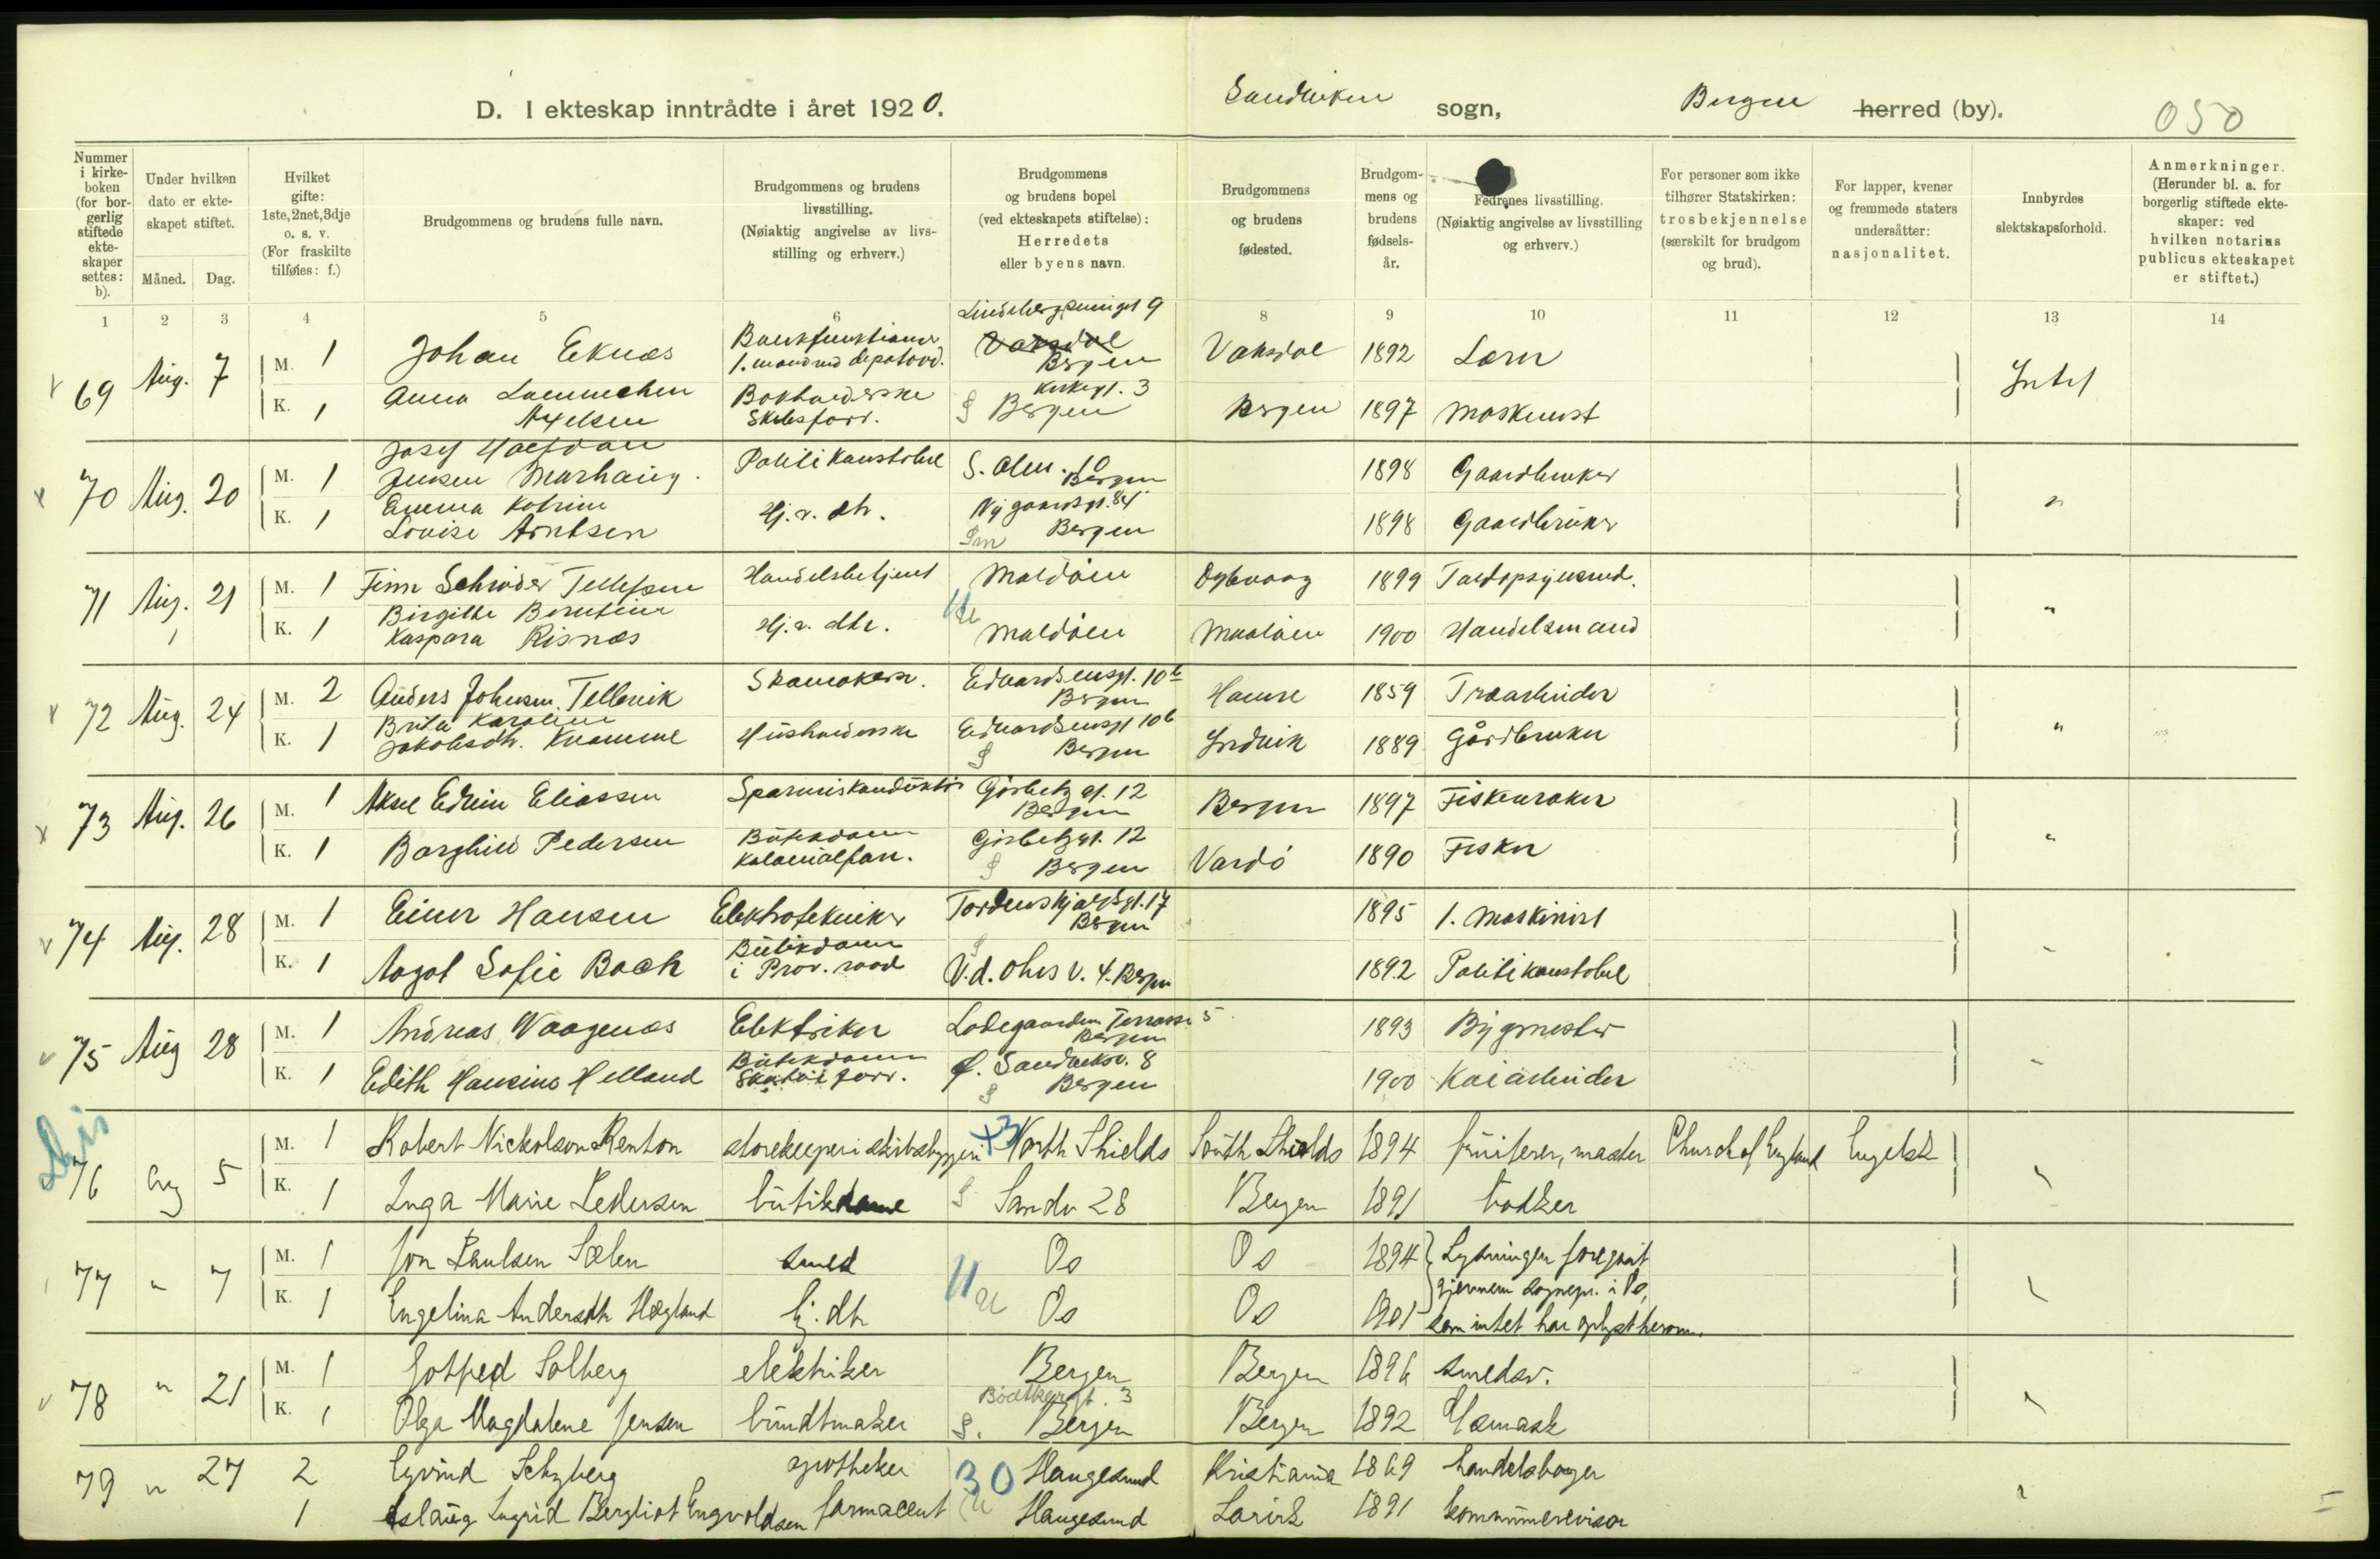 D. I ekteskap inntrådte i året 1920. Sandviken sogn, Bergen herred (by). 050
Nummer i kirkeboken (for borgerlig stiftede ekteskaper settes: b).
Under hvilken dato er ekteskapet stiftet.
Måned. Dag.
Hvilket gifte: 1ste, 2net, 3dje o. s. v. (For fraskilte tilføies: f.)
Brudgommens og brudens fulle navn.
Brudgommens og brudens livsstilling. (Nøiaktig angivelse av livsstilling og erhverv.)
Brudgommens og brudens bopel (ved ekteskapets stiftelse): Herredets eller byens navn.
Brudgommens og brudens fødested.
Brudgommens og brudens fødselsår.
Fedrenes livsstilling. (Nøiaktig angivelse av livsstilling og erhverv.)
For personer som ikke tilhører Statskirken: trosbekjennelse (særskilt for brudgom og brud).
For lapper, kvener og fremmede staters undersåtter: nasjonalitet.
Innbyrdes slektskapsforhold.
Anmerkninger. (Herunder bl. a. for borgerlig stiftede ekteskaper: ved hvilken notarius publicus ekteskapet er stiftet.)
1 2 3 4 5 6 8 9 10 11 12 13 14
69 Aug. 7 M. 1 Johan Eknæs Vaksdal Bergen Vaksdal 1892 Lærer Intet
K. 1 Anna Axelsen Bokholderske Kirkegt. 3 Bergen Bergen 1897 Maskinist
70 Aug. 20 M. 1 Josef Halfdan Jensen Marhaug. Politikonstabel Bergen 1898 Gaardbruker "
K. 1 Emma Katrine Lovise Arntsen Hj. v. dtr. Nygaardsgt. 84 Bergen 1898 Gaardbruker
71 Aug. 21 M. 1 Finn Schrøder Tellefsen Handelsbetjent Maldøen 1899 "
K. 1 Birgitte Berntine Kaspara Risnæs Hj. v. dtr. Maldøen Maaløen 1900 Handelsmand
72 Aug. 24 M. 2 Anders Johnsen Tellevik Skomaker Edvardsensgt. 10b Bergen Hamre 1859 Træarbeider "
K. 1 Brita Karoline Jakobsdtr. Kvamme Husholderske Edvardsensgt 10b Bergen Indvik 1889 Gårdbruker
73 Aug. 26 M. 1 Aksel Edvin Eliassen Gørbitzgt. 12 Bergen Bergen 1897 Fiskevraker "
K. 1 Borghild Pedersen Butikdame Kolonialforr. Gørbitzgt. 12 Bergen Vardø 1890 Fisker
74 Aug. 28 M. 1 Einar Hansen Elektrotekniker Tordenskjoldsgt. 17 Bergen 1895 1. Maskinist "
K. 1 Aagot Sofie Bach Butikdame i Prov. raad Bergen 1892 Politikonstabel
75 Aug 28 M. 1 Andreas Waagenæs Elektriker Ladegaarden Terrasse 5 Bergen 1893 Bygmester "
K. 1 Edith Hansine Helland Butikdame Skotøiforr. Sandviksv. 8 Bergen 1900 Kaiarbeider
76 Aug 5 M. 1 Robert Nickolson Renton storekeeper i skibsbyggeri North Shields South Shields 1894 fruiterer, master Church of England Engelsk "
K. 1 Inga Marie Pedersen butikdame Sandv 28 Bergen 1891 bødker
77 " 7 M. 1 Jon Paulsen Sælen smed Os Os 1894 Lysningen foregaat "
K. 1 Engelina Andersdtr Hægland hj. dtr Os Os 1901 gjennem sognepr. i Os, som intet har oplyst herom.
78 " 21 M. 1 Gotfred Solberg elektriker Bergen Bergen 1896 smedsv. "
K. 1 Olga Magdalene Jensen bundtmaker Bødkergt. 3 Bergen Bergen 1892
79 " 27 2 Eyvind Schyberg apotheker 30 Haugesund Kristiania 1869 handelsborger "
1 Aslaug Ingrid Bergliot Engvoldsen farmaceut Haugesund Larvik 1891 kommunerevisor